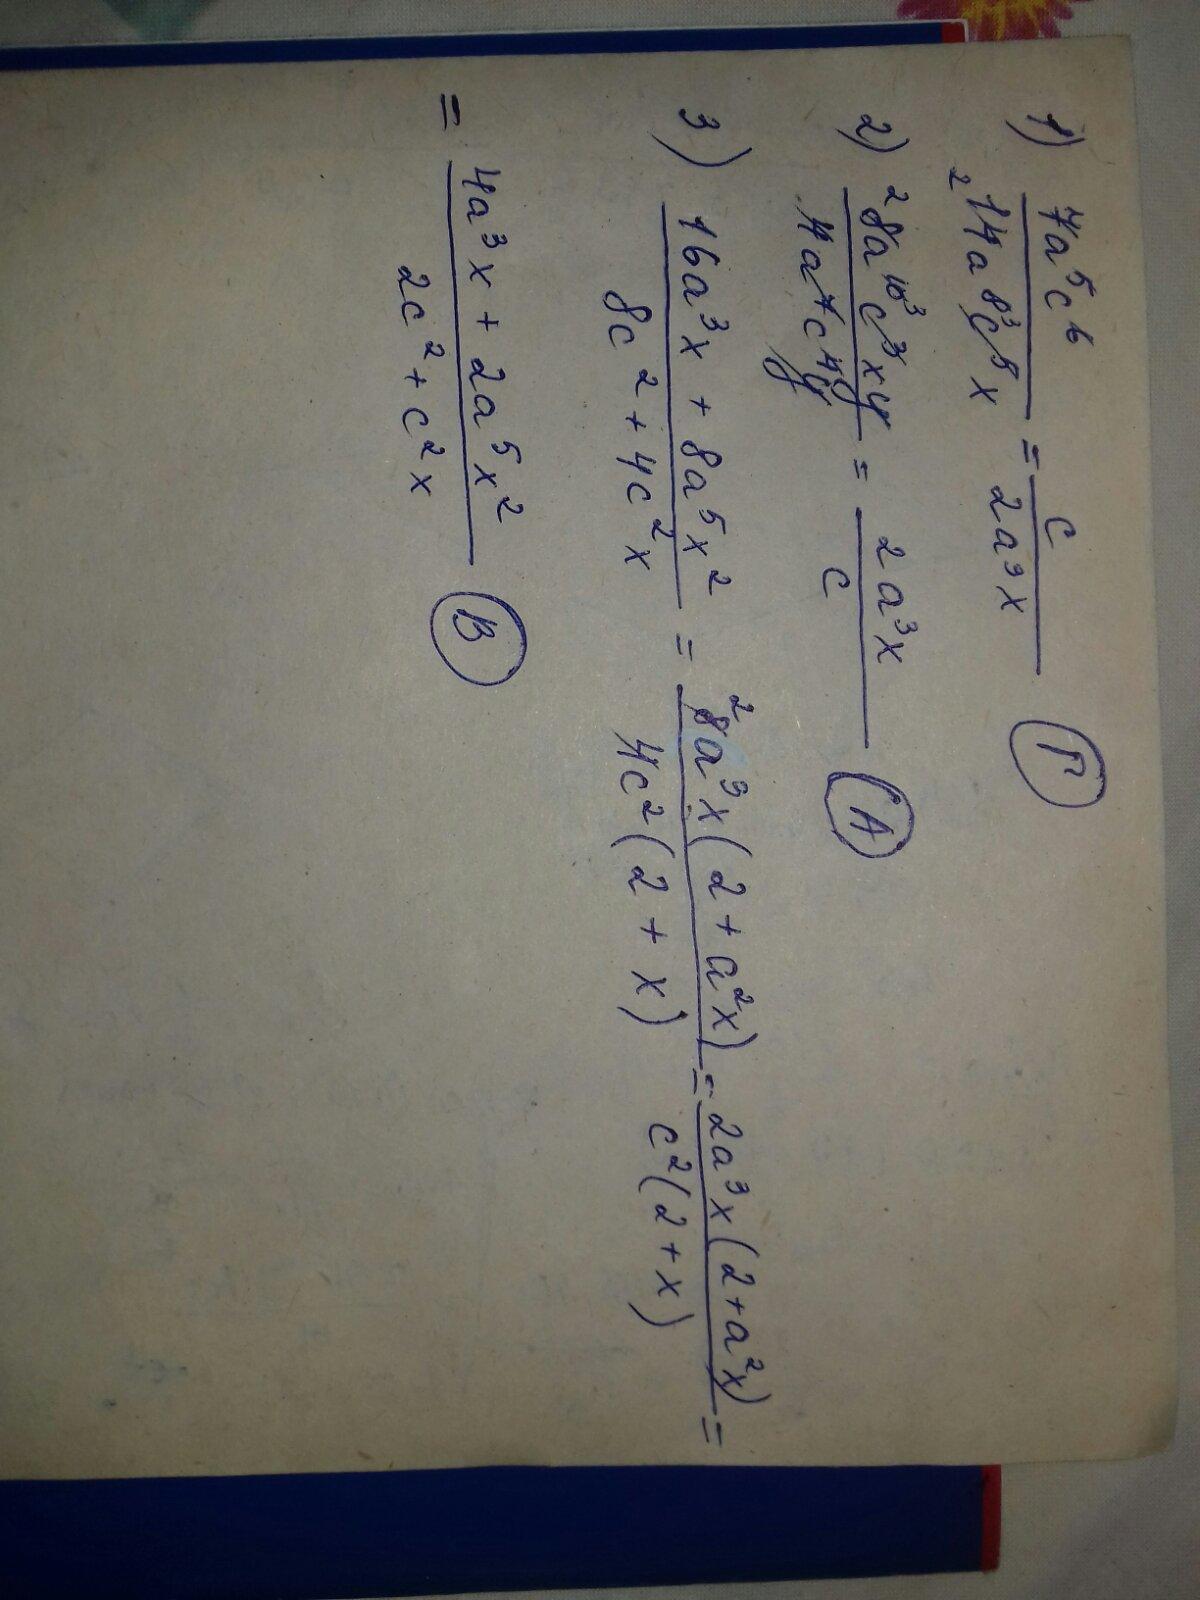 1) 7a⁵c⁶ / 14a⁸c⁵x = c / 2a³x (Г)
2) 8a¹⁰c³xy / 4a⁷c⁴y = 2a³x / c (А)
3) 16a³x + 8a⁵x² / 8c² + 4c²x = 8a³x(2 + a²x) / 4c²(2 + x) = 2a³x(2+a²x) / c²(2+x) =
= 4a³x + 2a⁵x² / 2c² + c²x (В)